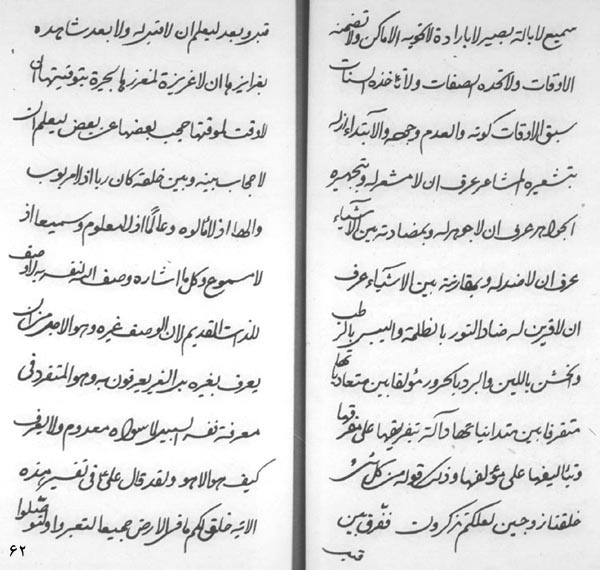 سميع لا بالة بصير لا بارادة لا تحويه الاماكن ولا تضمنه
الاوقات ولا تحده الصفات ولا تاخذه السنات
سبق الاوقات كونه والعدم وجوده والابتداء ازله
بتشعيره المشاعر عرف ان لا مشعر له وبتجهيره
الجواهر عرف ان لا جوهر له وبمضادته بين الاشياء
عرف ان لا ضد له وبمقارنته بين الاشياء عرف
ان لا قرين له ضاد النور بالظلمة واليبس بالرطب
والخشن باللين والبرد بالحرور مؤلفا بين متعادياتها
متفرقا بين متدانياتها دالة بتفريقها على مفرقها
وبتاليفها على مؤلفها وذلك قوله من كل شئ
خلقنا زوجين لعلكم تذكرون ففرق بين
قبل
قبل وبعد ليعلم ان لا قبل له ولا بعد شاهدة
بغرايزها ان لا غريزة لمغرزها مخبرة بتوقيتها ان
لا وقت لموقتها حجب بعضها عن بعض ليعلم ان
لا حجاب بينه وبين خلقه كان ربا اذ لا مربوب
والها اذ لا مالوه وعالما اذ لا معلوم وسميعا اذ
لا مسموع وكل ما اشاره وصف الله لنفسه به لا وصف
للذات القديم لان الوصف غيره وهو الاجل من ان
يعرف بغيره بل الغير يعرفون به وهو المتفرد في
معرفة نفسه السبيل لا سواه معدوم ولا يعرف
كيف هو الا هو ولقد قال علي ع في تفسير هذه
الاية خلق لكم ما في الارض جميعا لتعبروا
٦٢